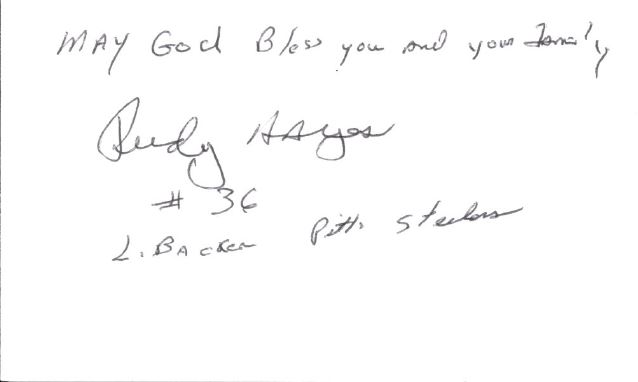 MAY God Bless you and your Family
Rudy Hayes
# 36
L. Backer Pitt. Steelers